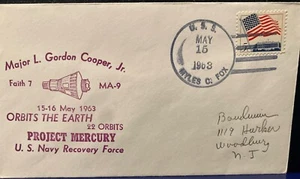 Major L. Gordon Cooper, Jr.
Faith 7 MA-9
15-16 May 1963
ORBITS THE EARTH
22 ORBITS
PROJECT MERCURY
U. S. Navy Recovery Force
U. S. S.
MAY
15
1963
MYLES C. FOX
Boudman
1119 Harker
Woodbury
N J